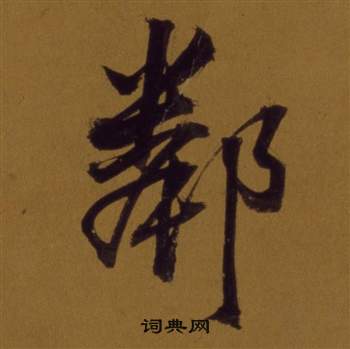 鄰
词典网